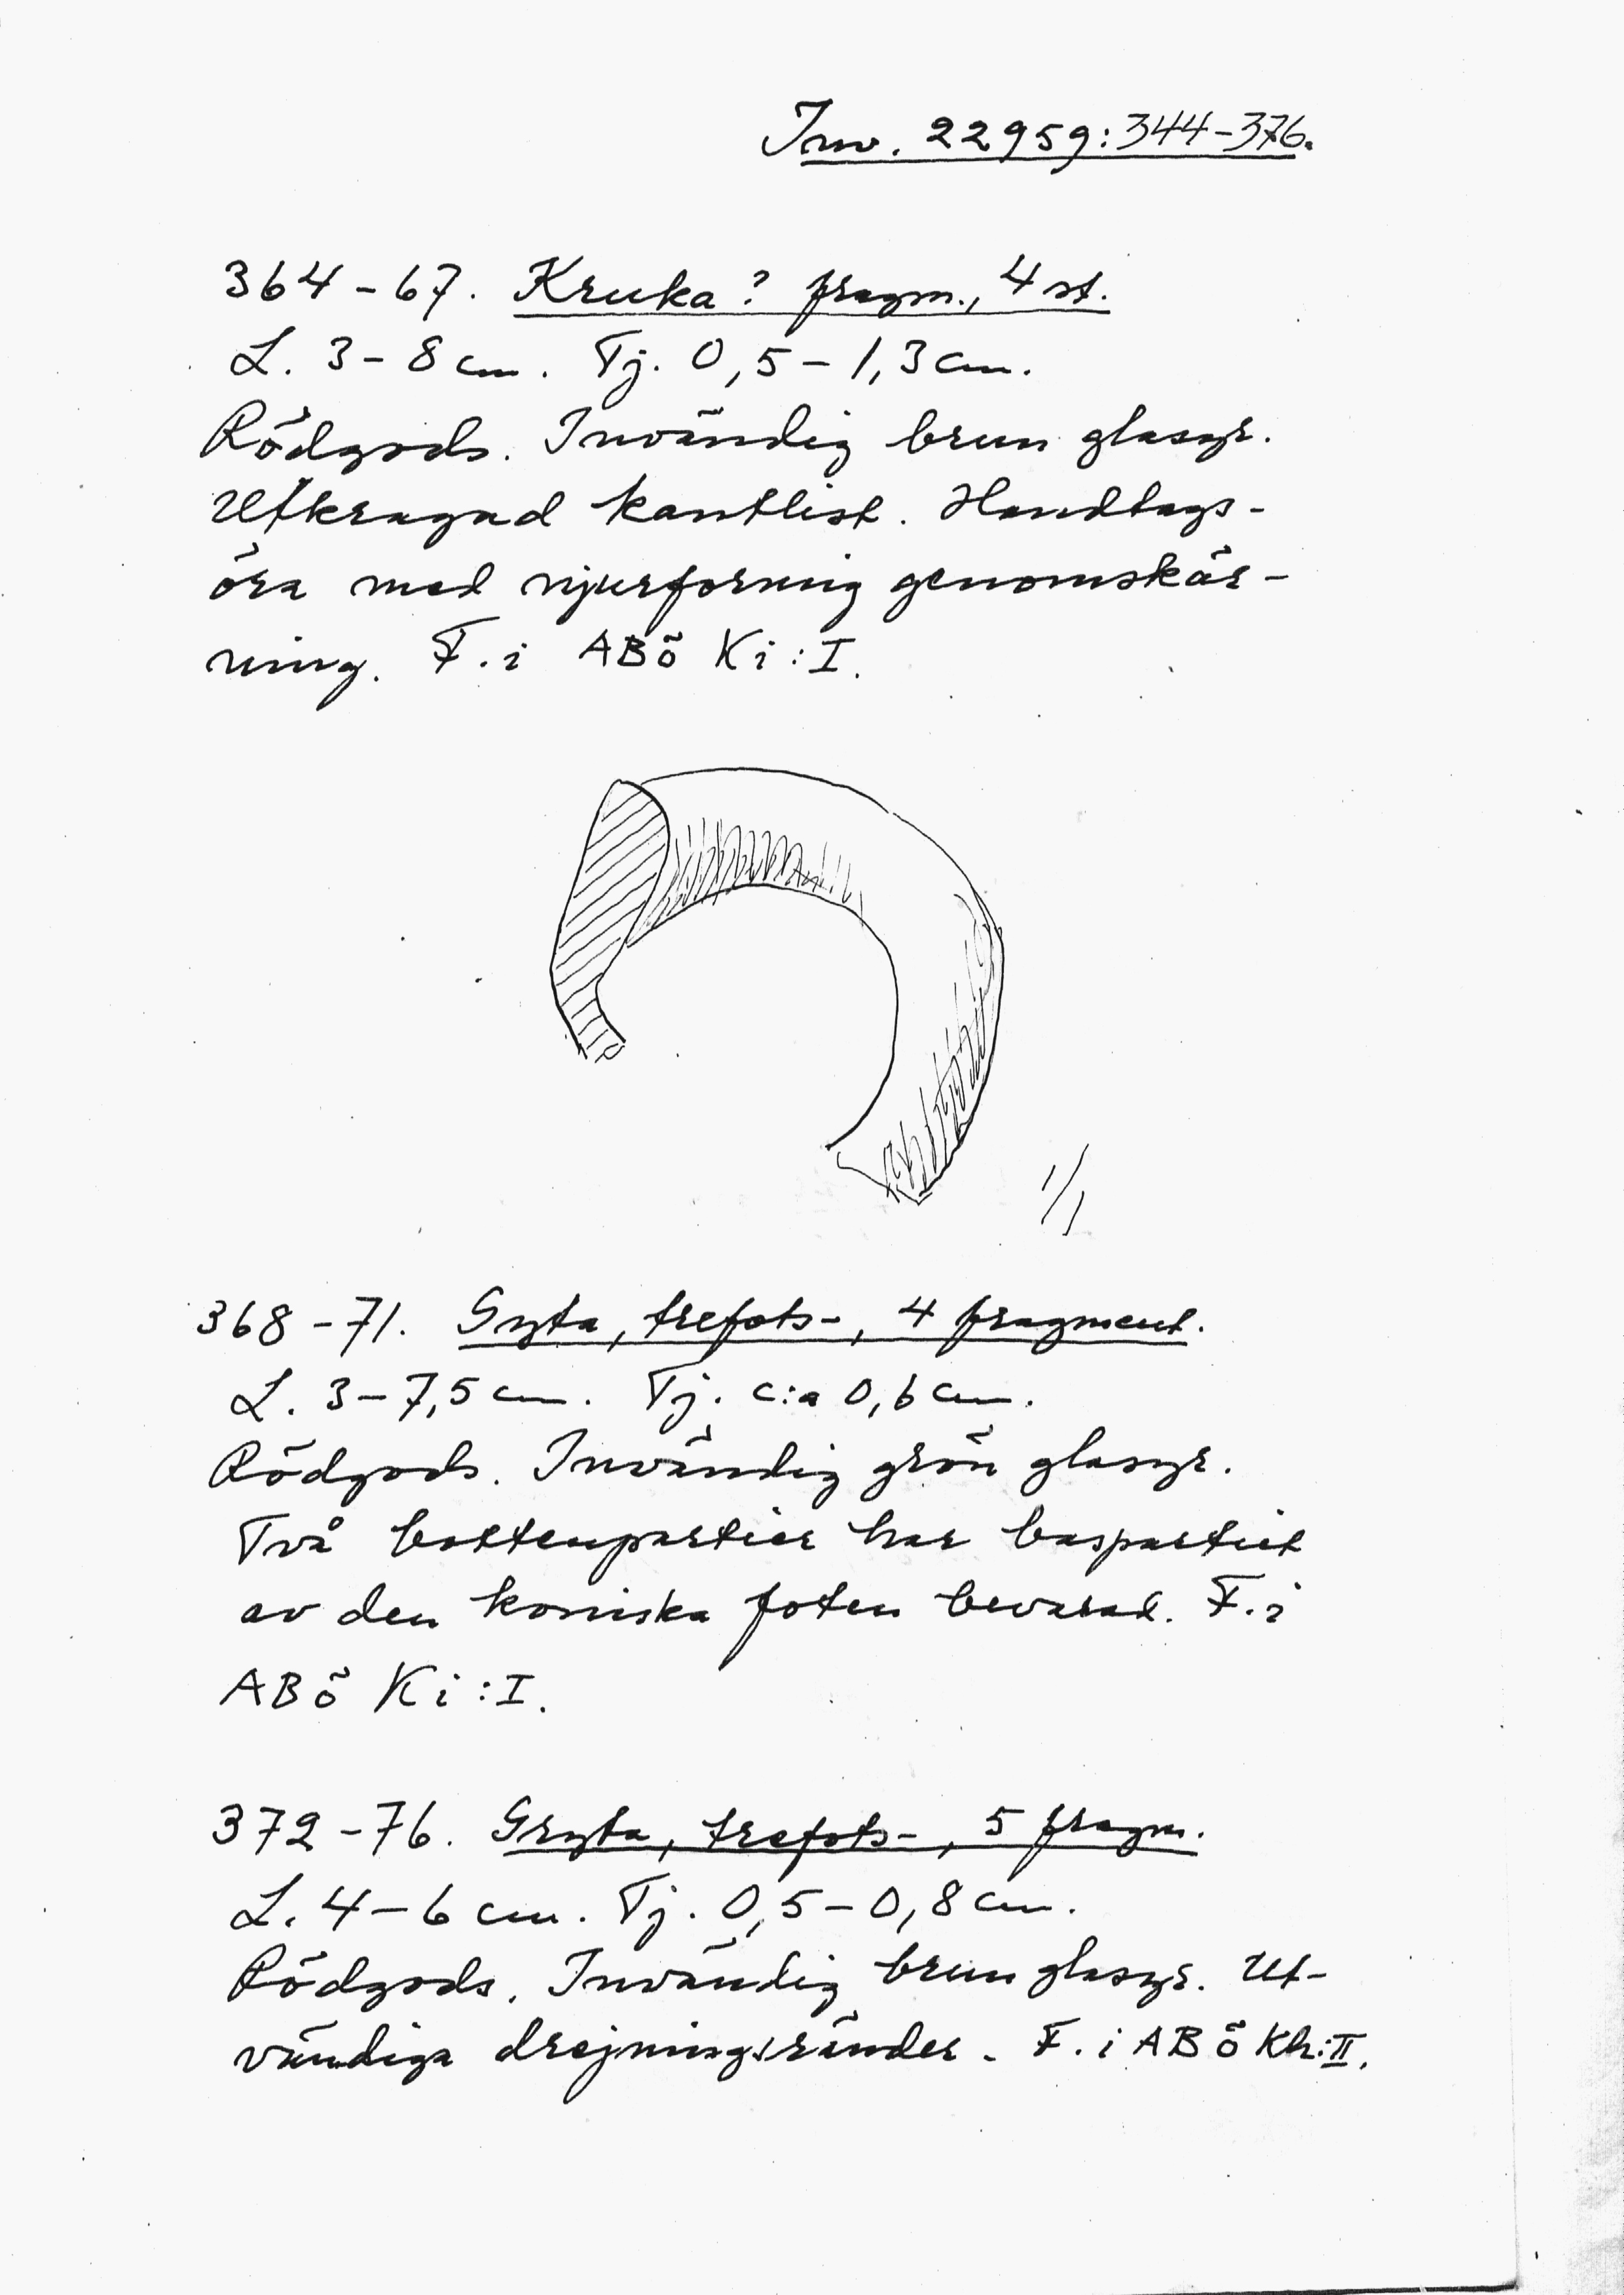 Inv. 22959:344-376.
364-67. Kruka? fragm., 4 st.
L. 3-8 cm. Tj. 0,5-1,3 cm.
Rödgods. Invändig brun glasyr.
Utkragad kantlist. Handtags-
öra med njurformig genomskär-
ning. F. i ABö Ki:I.
1/1
368-71. Gryta, trefots-, 4 fragment.
L. 3-7,5 cm. Tj. c:a 0,6 cm.
Rödgods. Invändig grön glasyr.
Två bottenpartier har baspartiet
av den koniska foten bevarad. F. i
ABö Ki:I.
372-76. Gryta, trefots-, 5 fragm.
L. 4-6 cm. Tj. 0,5-0,8 cm.
Rödgods. Invändig brun glasyr. Ut-
vändiga drejningsränder. F. i ABö Kh:II.